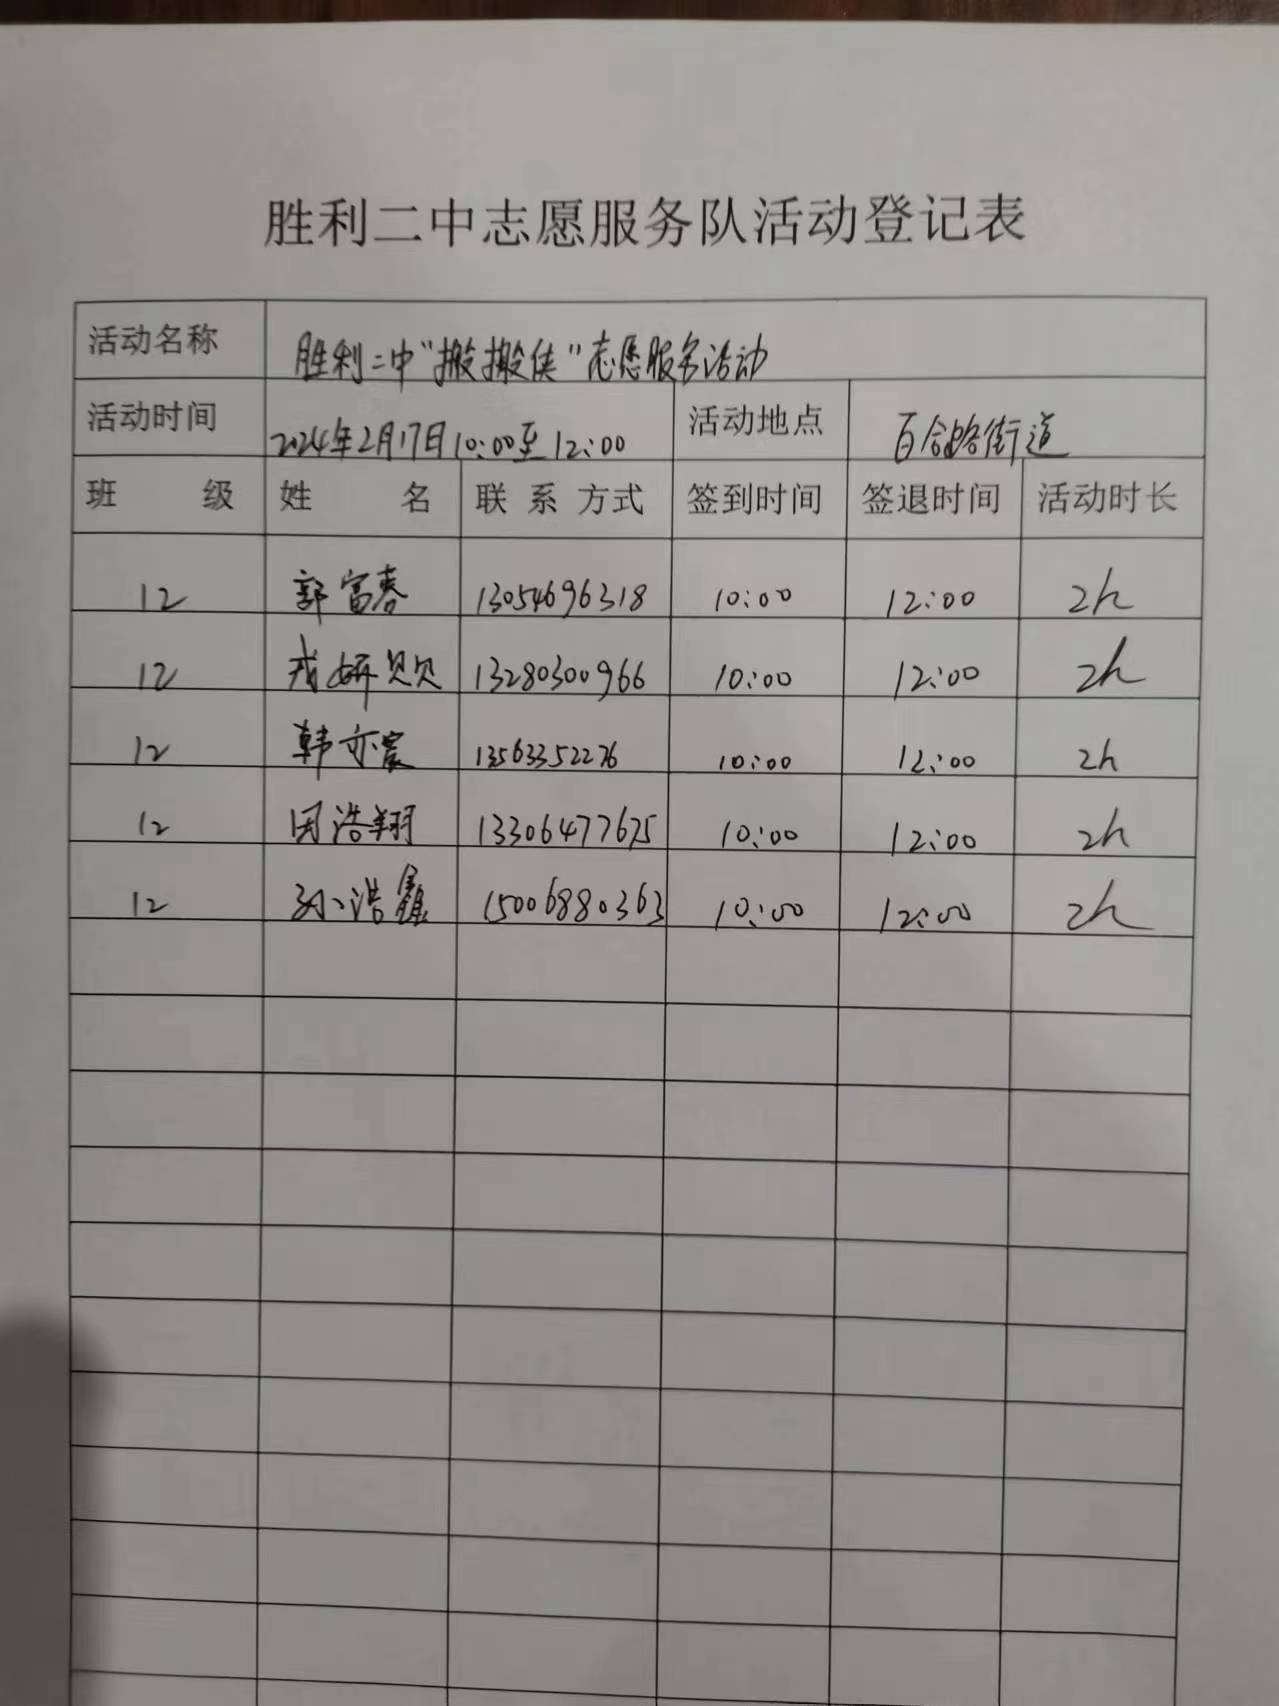 胜利二中志愿服务队活动登记表
活动名称 胜利二中“搬搬侠”志愿服务活动
活动时间 2024年2月17日10:00至12:00 活动地点 百合路街道
班 级 姓 名 联 系 方式 签到时间 签退时间 活动时长
12 郭富春 13054696318 10:00 12:00 2h
12 戎妍贝贝 13280300966 10:00 12:00 2h
12 韩亦宸 13563352276 10:00 12:00 2h
12 周浩翔 13306477675 10:00 12:00 2h
12 孙浩鑫 15006880363 10:00 12:00 2h